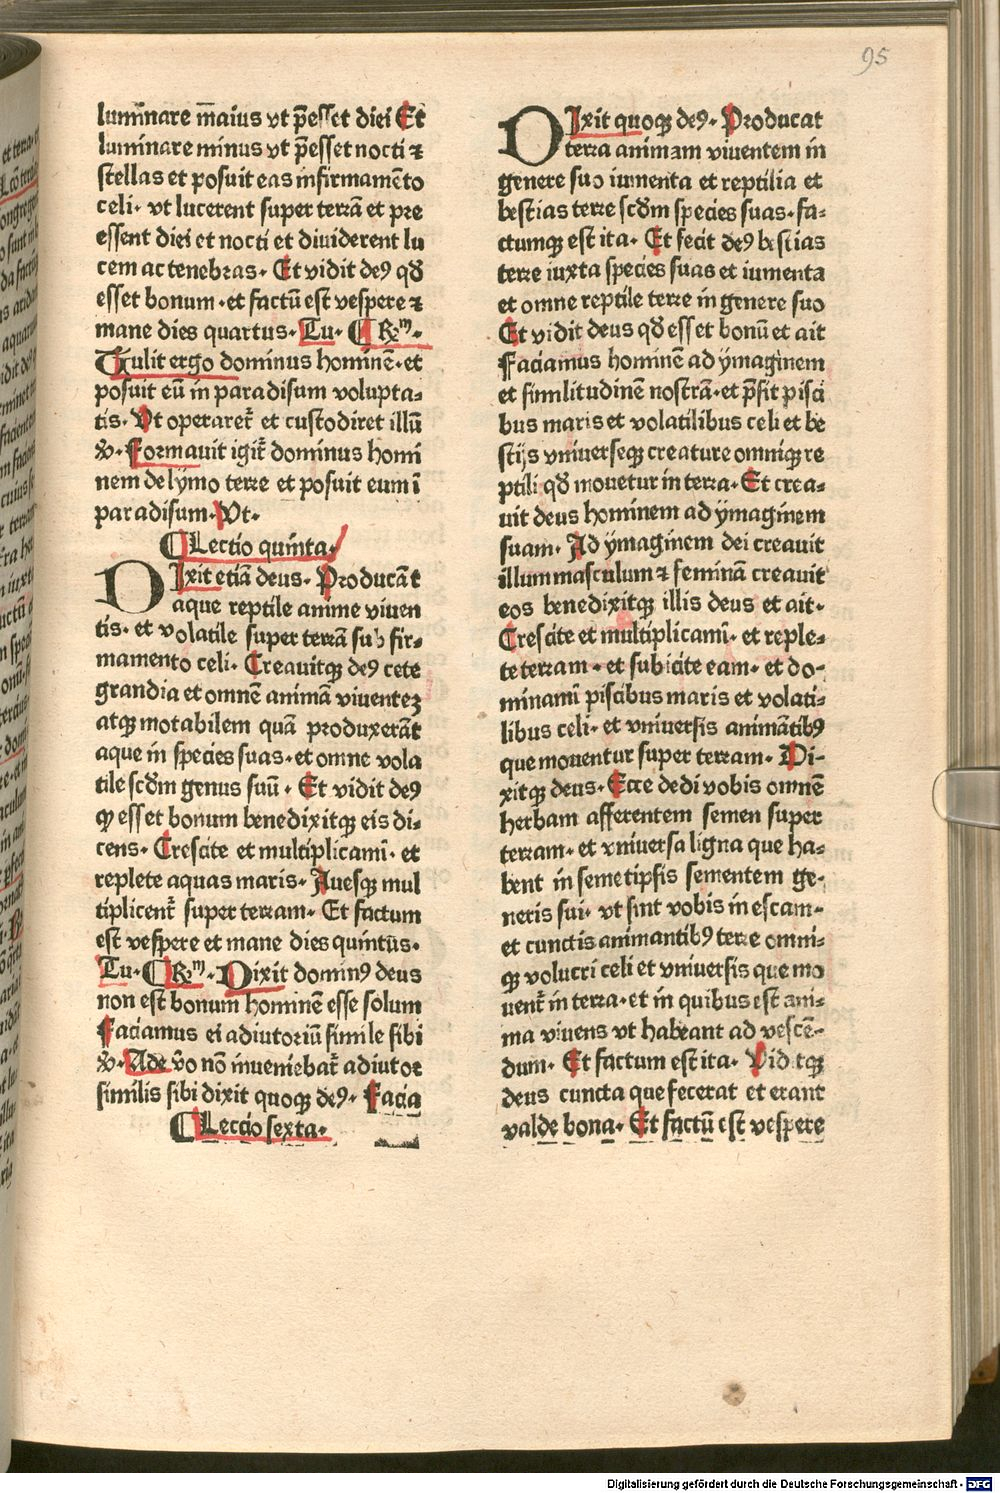 95
luminare maius vt p̄esset diei Et
luminare minus vt p̄esset nocti ⁊
stellas et posuit eas in firmamēto
celi· vt lucerent super terrā et pre
essent diei et nocti et diuiderent lu
cem ac tenebras· Et vidit deꝰ qđ
esset bonum· et factū est vespere ⁊
mane dies quartus· Tu· ¶ Rm̄·
Tulit ergo dominus hominē· et
posuit eū in paradisum volupta⸗
tis· Vt operaret᷑ et custodiret illū
v̄· Formauit igit᷑ dominus homi
nem de lÿmo terre et posuit eum ī
paradisum· Vt·
¶ Lectio quinta·
DIxit etiā deus· Producāt
aque reptile anime viuen
tis· et volatile super terrā sub fir⸗
mamento celi· Creauitqꝫ deꝰ cete
grandia et omnē animā viuenteꝫ
atqꝫ motabilem quā produxerāt
aque in species suas· et omne vola
tile scđm genus suū· Et vidit deꝰ
ꝙ esset bonum benedixitqꝫ eis di⸗
cens· Crescite et multiplicamī· et
replete aquas maris· Auesqꝫ mul
tiplicent᷑ super terram· Et factum
est vespere et mane dies quintus·
Tu· ¶ Rm̄· Dixit dominꝰ deus
non est bonum hominē esse solum
Faciamus ei adiutoriū simile sibi
v̄· Ade v̄o nō inueniebat᷑ adiutor
similis sibi dixit quoqꝫ deꝰ· Facia
¶ Lectio sexta·
DIxit quoqꝫ deꝰ· Producat
terra animam viuentem in
genere suo iumenta et reptilia et
bestias terre scđm species suas· fa⸗
ctumqꝫ est ita· Et fecit deꝰ bestias
terre iuxta species suas et iumenta
et omne reptile terre in genere suo
Et vidit deus qđ esset bonū et ait
Faciamus hominē ad ÿmaginem
et similitudinem nostrā· et p̄sit pisci
bus maris et volatilibus celi et be
stijs vniuerseqꝫ creature omniqꝫ re
ptili qđ mouetur in terra· Et crea⸗
uit deus hominem ad ÿmaginem
suam· Ad ÿmaginem dei creauit
illum masculum ⁊ feminā creauit
eos benedixitqꝫ illis deus et ait·
Crescite et multiplicamī· et reple⸗
te terram· et subicite eam· et do⸗
minamī piscibus maris et volati⸗
libus celi· et vniuersis animātibꝰ
que mouentur super terram· Di⸗
xitqꝫ deus· Ecce dedi vobis omnē
herbam afferentem semen super
terram· et vniuersa ligna que ha⸗
bent in semetipsis sementem ge⸗
neris sui· vt sint vobis in escam·
et cunctis animantibꝰ terre omni⸗
qꝫ volucri celi et vniuersis que mo
uent᷑ in terra· et in quibus est ani⸗
ma viuens vt habeant ad vescē⸗
dum· Et factum est ita· Viditqꝫ
deus cuncta que fecerat et erant
valde bona· Et factū est vespere
Digitalisierung gefördert durch die Deutsche Forschungsgemeinschaft - DFG